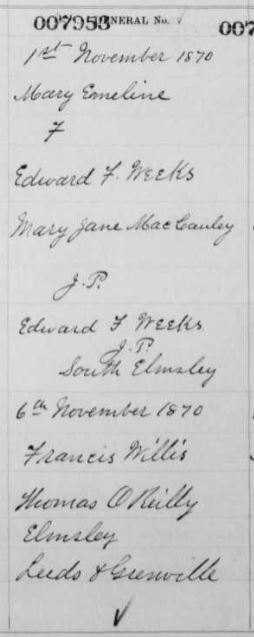 007953 GENERAL No. 007
1st November 1870
Mary Emeline
F
Edward F. Weeks
Mary Jane MacCauley
J.P.
Edward F Weeks
J.P.
South Elmsley
6th November 1870
Francis Willis
Thomas O'Reilly
Elmsley
Leeds & Grenville